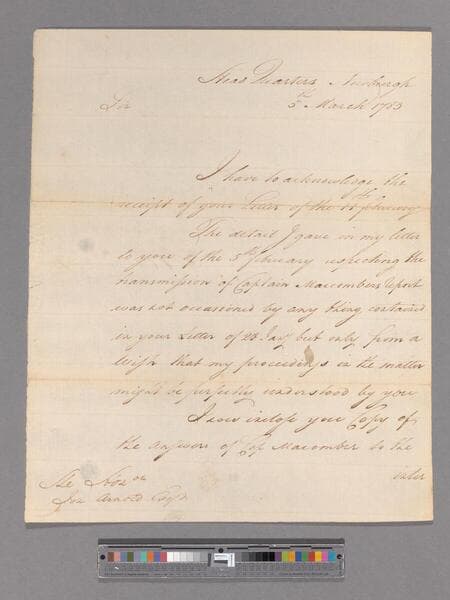 Head Quarters Newburgh
5th March 1783
Sir
I have to acknowledge the
receipt of your Letter of the February
The detail I gave in my letter
to you of the 5th February respecting the
transmission of Captain Macombers report
was not occasioned by any thing contained
in your Letter of 28 Jany but only from a
Wish that my proceedings in the matter
might be perfectly understood by you
I now inclose you Copy of
the answers of Cap Macomber to the
The Honble
Jon Arnold Esqr